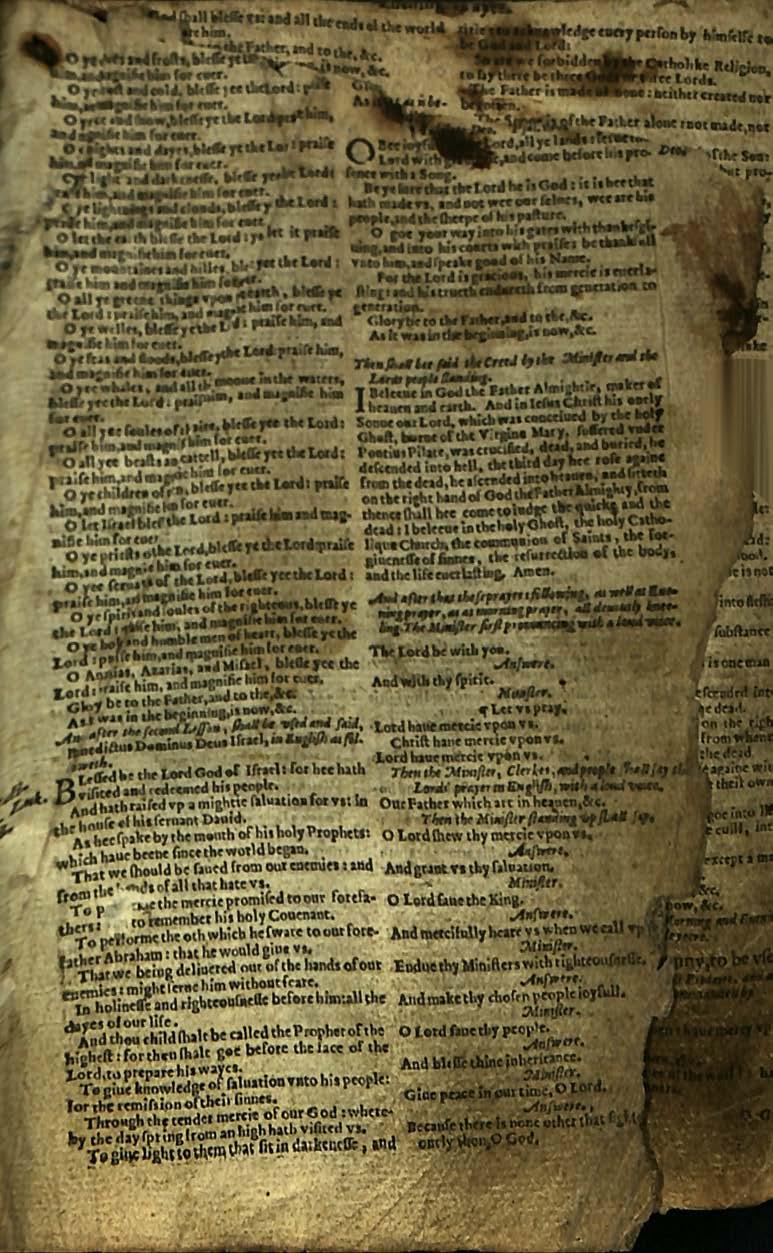 God shall blesse vs: and all the ends of the world
feare him.
the Father, and to the, &c.
is now, &c.
O ye dewes and frosts, blesse ye the
him, and magnifie him for euer.
O ye frost and cold, blesse yee the Lord: praise
him, and magnifie him for euer.
O yee ice and snow, blesse ye the Lord: praise him,
and magnifie him for euer.
O ye nights and dayes, blesse ye the Lord: praise
him, and magnifie him for euer.
O ye light and darkenesse, blesse ye the Lord:
praise him, and magnifie him for euer.
O ye lightnings and clouds, blesse ye the Lord:
praise him, and magnifie him for euer.
O let the earth blesse the Lord: yea let it praise
him, and magnifie him for euer.
O ye mountaines and hilles, blesse yet the Lord:
praise him and magnifie him for euer.
O all ye greene things vpon the earth, blesse ye
the Lord: praise him, and magnifie him for euer.
O ye welles, blesse ye the Lord: praise him, and
magnifie him for euer.
O ye seas and floods, blesse ye the Lord: praise him,
and magnifie him for euer.
O ye whales, and all that mooue in the waters,
blesse yee the Lord: praise him, and magnifie him
for euer.
O all yee foules of the aire, blesse yee the Lord:
praise him, and magnifie him for euer.
O all yee beasts and cattell, blesse yee the Lord:
praise him, and magnifie him for euer.
O ye children of men, blesse yee the Lord: praise
him, and magnifie him for euer.
O let Israel blesse the Lord: praise him and mag-
nifie him for euer.
O ye priests of the Lord, blesse ye the Lord: praise
him, and magnifie him for euer.
O yee seruants of the Lord, blesse yee the Lord:
praise him, and magnifie him for euer.
O ye spirits and soules of the righteous, blesse ye
the Lord: praise him, and magnifie him for euer.
O ye holy and humble men of heart, blesse ye the
Lord: praise him, and magnifie him for euer.
O Ananias, Azarias, and Misael, blesse yee the
Lord: praise him, and magnifie him for euer.
Glory be to the Father, and to the, &c.
As it was in the beginning, is now, &c.
And after the second Lesson, shall be vsed and said,
Benedictus Dominus Deus Israel, in English as fol-
loweth.
BLessed be the Lord God of Israel: for hee hath
visited and redeemed his people.
And hath raised vp a mightie saluation for vs: in
the house of his seruant Dauid.
As hee spake by the mouth of his holy Prophets:
which haue beene since the world began.
That we should be saued from our enemies: and
from the hands of all that hate vs.
To p me the mercie promised to our forefa-
thers: to remember his holy Couenant.
To performe the oth which he sware to our fore-
father Abraham: that he would giue vs.
That we being deliuered out of the hands of our
enemies: might serue him without feare.
In holinesse and righteousnesse before him: all the
dayes of our life.
And thou child shalt be called the Prophet of the
highest: for thou shalt goe before the face of the
Lord, to prepare his wayes.
To giue knowledge of saluation vnto his people:
for the remission of their sinnes.
Through the tender mercie of our God: where-
by the day spring from an high hath visited vs.
To giue light to them that sit in darkenesse, and
OBee ioyfull Lord, all ye lands: serue
Lord with and come before his pre-
sence with a Song.
Be ye sure that the Lord he is God: it is hee that
hath made vs, and not wee our selues, wee are his
people, and the sheepe of his pasture.
O goe your way into his gates with thankesgi-
uing, and into his courts with praises: be thankfull
vnto him, and speake good of his Name.
For the Lord is gracious, his mercie is euerla-
sting: and his trueth endureth from generation to
generation.
Glory be to the Father, and to the, &c.
As it was in the beginning, is now, &c.
Then shall bee said the Creed by the Minister and the
Lords people standing.
I Beleeue in God the Father Almightie, maker of
heauen and earth. And in Iesus Christ his onely
Sonne our Lord, which was conceiued by the holy
Ghost, borne of the Virgine Mary, suffered vnder
Pontius Pilate, was crucified, dead, and buried, he
descended into hell, the third day hee rose againe
from the dead, he ascended into heauen, and sitteth
on the right hand of God the Father Almighty, from
thence shall hee come to iudge the quicke and the
dead: I beleeue in the holy Ghost, the holy Catho-
lique Church, the communion of Saints, the for-
giuenesse of sinnes, the resurrection of the body,
and the life euerlasting, Amen.
And after that these prayers following, as well at Eue-
ning prayer, as at morning prayer, all deuoutly knee-
ling. The Minister first pronouncing with a loud voice.
The Lord be with you.
Answere.
And with thy spirit.
Minister.
¶ Let vs pray.
Lord haue mercie vpon vs.
Christ haue mercie vpon vs.
Lord haue mercie vpon vs.
Then the Minister, Clerkes, and people shall say the
Lords prayer in English, with a loud voice.
Our Father which art in heauen, &c.
Then the Minister standing vp shall say,
O Lord shew thy mercie vpon vs,
Answere.
And grant vs thy saluation.
Minister.
O Lord saue the King.
Answere.
And mercifully heare vs when we call vp
Minister.
Endue thy Ministers with righteousnesse.
Answere.
And make thy chosen people ioyfull.
Minister.
O Lord saue thy people.
Answere.
And blesse thine inheritance.
Minister.
Giue peace in our time, O Lord.
Answere.
Because there is none other that fight
onely thou, O God.
knowledge euery person by himselfe to
be God and Lord:
So are we forbidden by the Catholike Religion,
to say there be three Gods or three Lords.
The Father is made of none: neither created nor
begotten.
The Sonne is of the Father alone: not made, not
of the Son:
but pro-
into flesh
substance
is one man
escended into
he dead.
on the righ
from whenc
the dead.
againe wit
their own
goe into
euill, int
except a ma
&c.
now, &c.